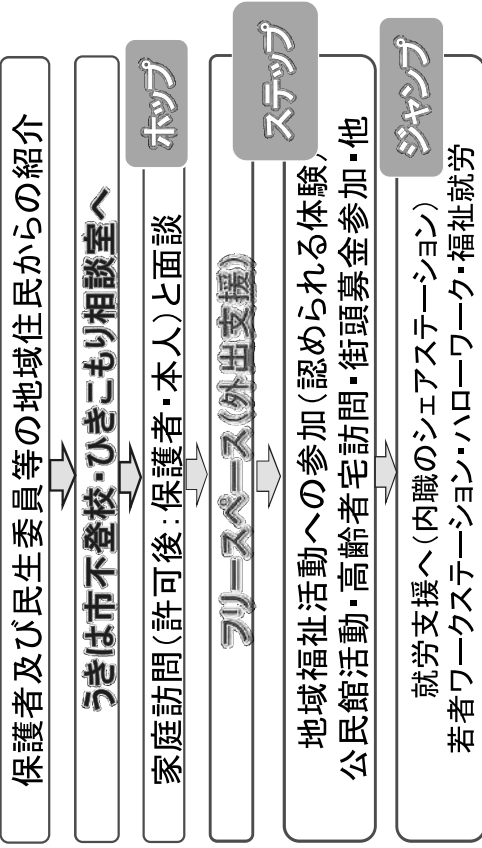 保護者及び民生委員等の地域住民からの紹介
うきは市不登校・ひきこもり相談室へ
ホップ
家庭訪問(許可後:保護者・本人)と面談
フリースペース(外出支援)
ステップ
地域福祉活動への参加(認められる体験)
公民館活動・高齢者宅訪問・街頭募金参加・他
ジャンプ
就労支援へ(内職のシェアステーション)
若者ワークステーション・ハローワーク・福祉就労